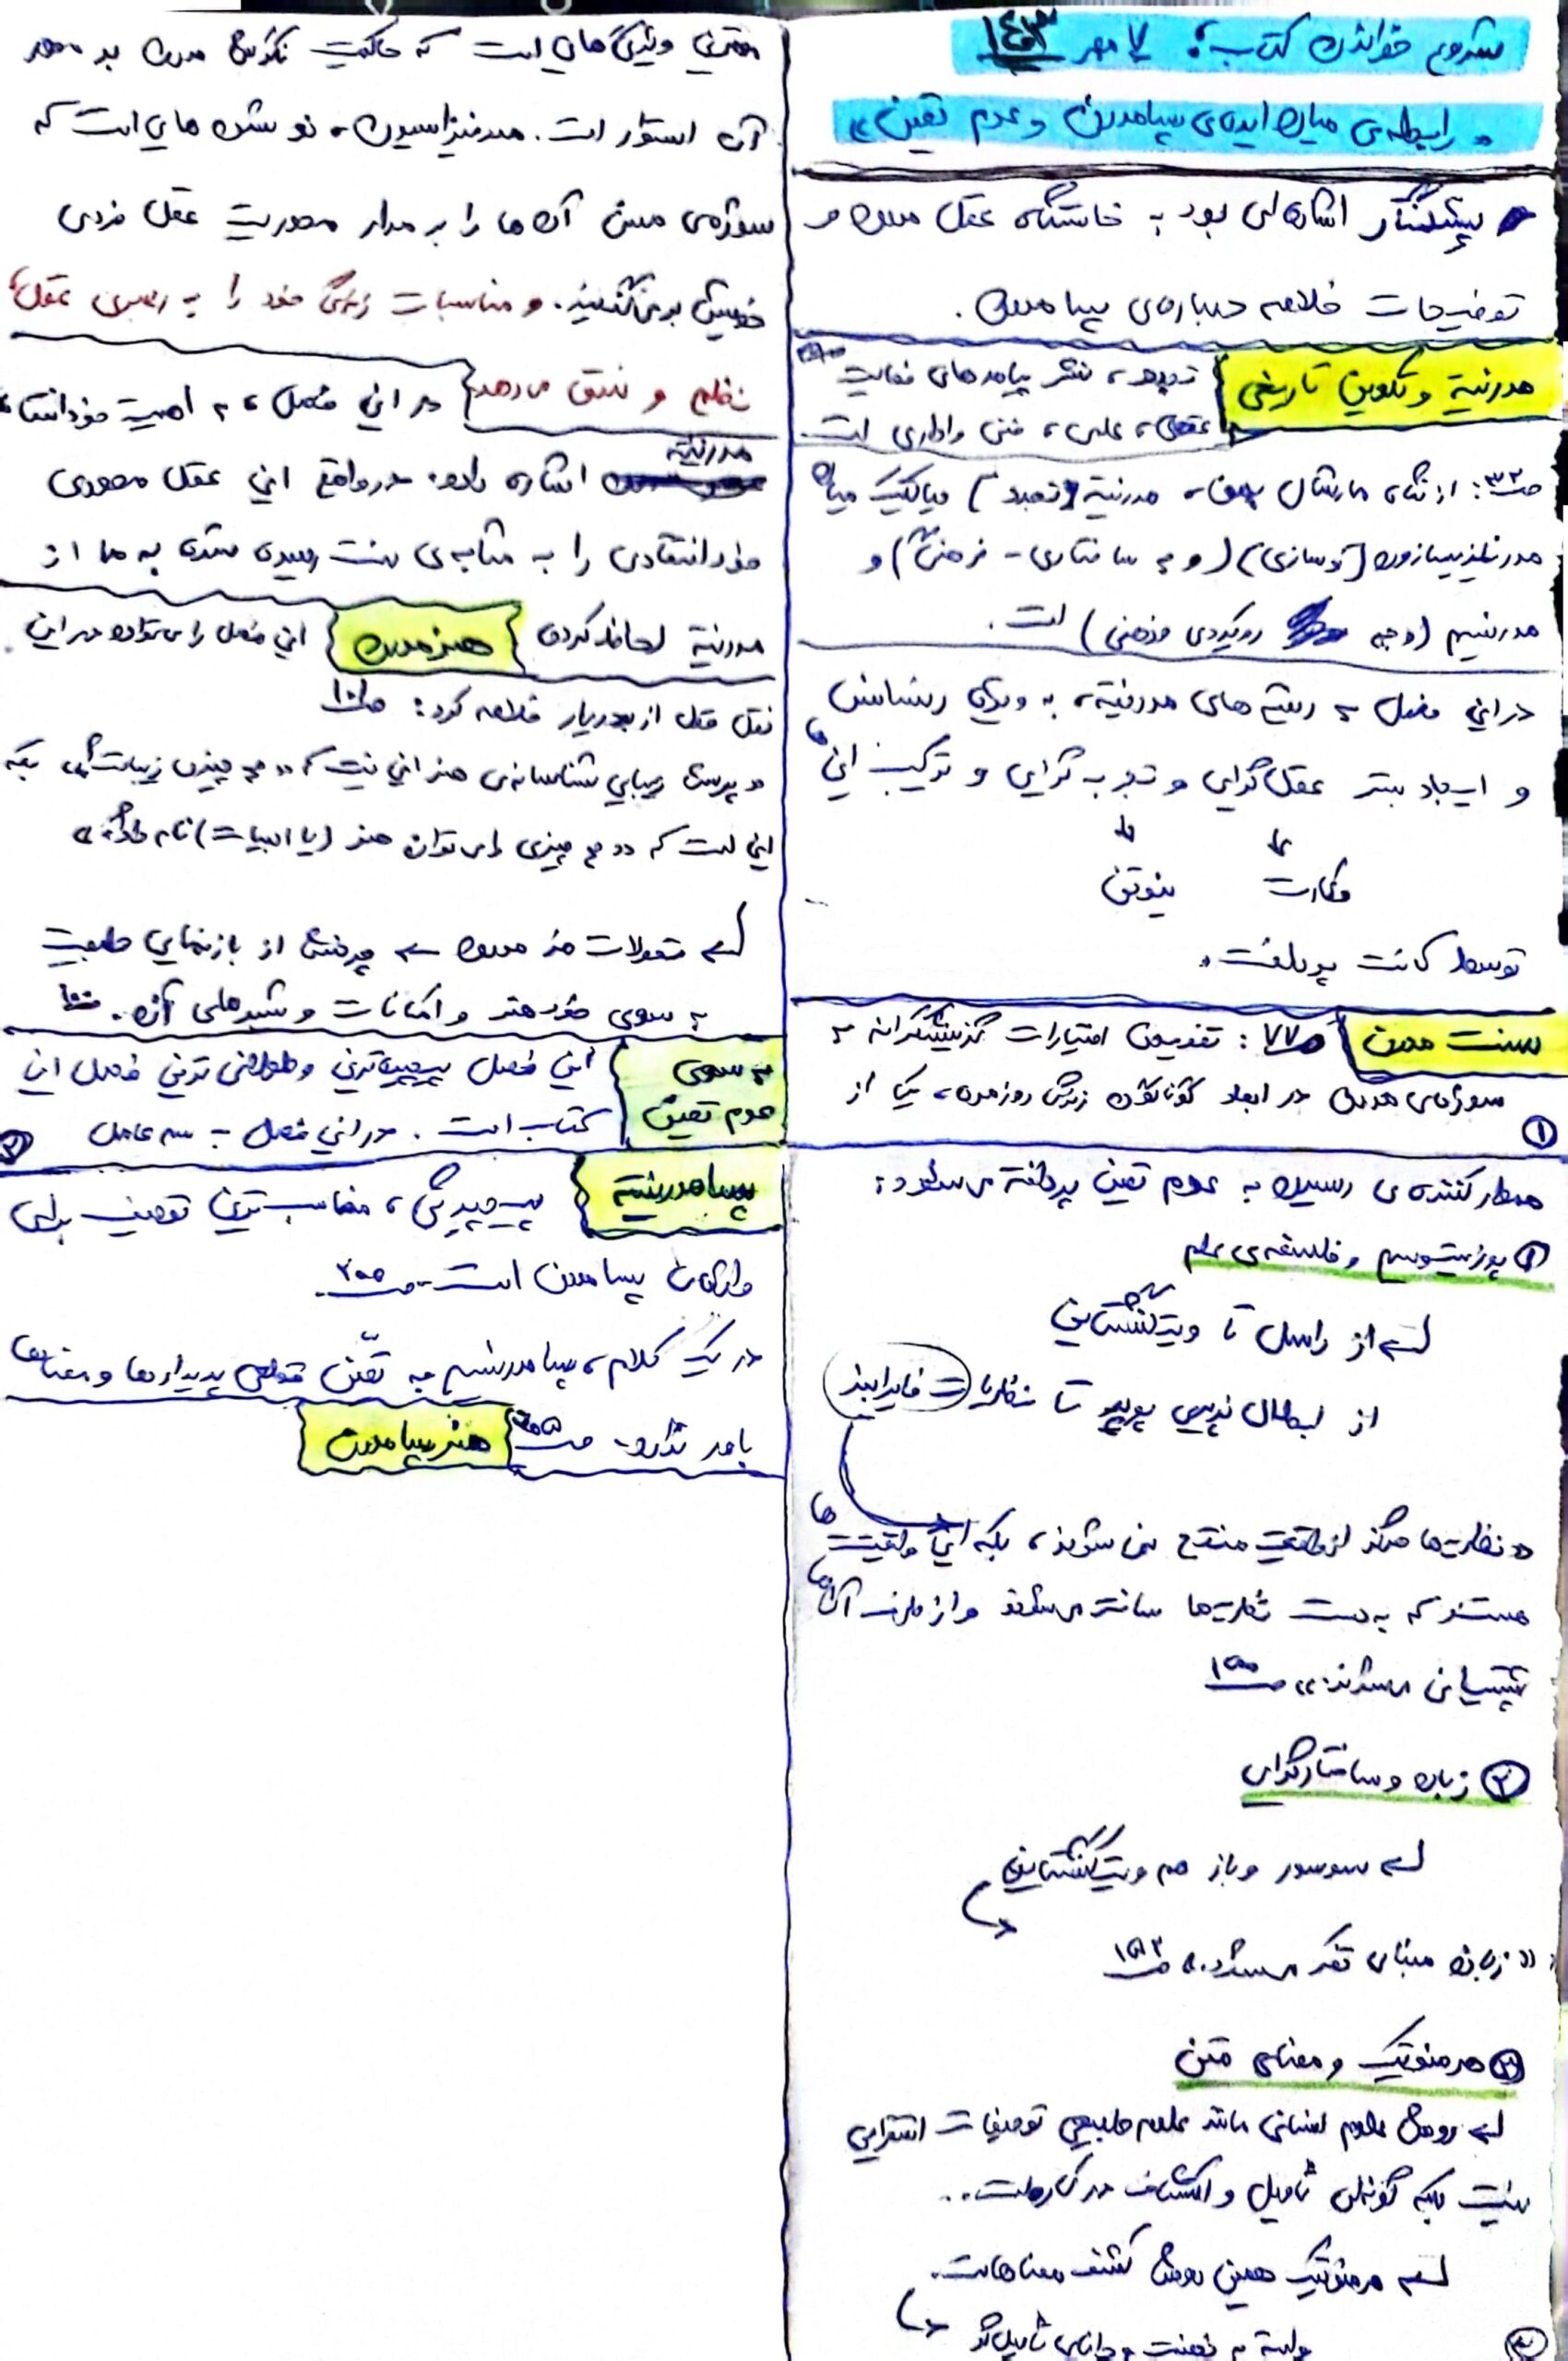 شروع خواندن کتاب: ۷ مهر ۱۴۰۳
« رابطه‌ی میان ایده‌ی پسامدرن و عدم تعین »
پیشگفتار اشاره‌ای بود به خاستگاه عقل مدرن و
توضیحات خلاصه درباره‌ی پسامدرن.
مدرنیته و تکوین تاریخی
تجدد، نشر پیامدهای فعالیت
عقلی، علمی، فنی و اداری است.
ص۳۲: از نگاه مارشال برمن، مدرنیته (تجدد) دیالکتیک میان
مدرنیزیسازیون (نوسازی) (وجه ساختاری - فرهنگی) و
مدرنیسم (وجه رویکردی و ذهنی) است.
در این فصل به ریشه‌های مدرنیته، به ویژه رنسانس
و ایجاد بستر عقل‌گرایی و تجربه‌گرایی و ترکیب این‌ها
دکارت نیوتن
توسط کانت پرداخت.
سنت مدرن
ص۷۷: تفویض امتیازات گزینشگرانه به
سوژه‌ی مدرن در ابعاد گوناگون زندگی روزمره، یکی از
۱
مهمترین ویژگی‌هایی است که حاکمیت نگرش مدرن بر محور
آن استوار است. مدرنیزاسیون، نو شدن‌هایی است که
سوژه‌ی مدرن آن‌ها را بر مدار محوریت عقل فردی
خویش برمی‌گزیند. و مناسبات زندگی خود را به رهبری عقل،
نظم و نسق می‌دهد
در این فصل، به اهمیت خودانتقادی
مدرنیته اشاره دارد. در واقع این عقل محوری
خودانتقادی را به مثابه‌ی سنت رسیده شده به ما از
مدرنیته لحاظ کردن
هنر مدرن
این فصل را می‌توان در این
نقل قول از بودریار خلاصه کرد: ص۱۰۱
« پرسش زیبایی شناسانه‌ی هنر این نیست که « چه چیزی زیباست؟ » بلکه
این است که « چه چیزی را می‌توان هنر (یا ادبیات) نام داد؟ »
تحولات هنر مدرن ← چرخش از بازنمایی طبیعت
به سوی خود هنر و امکانات و شیوه‌های آن.
به سوی
عدم تعین
این فصل پیچیده‌ترین و طولانی‌ترین فصل این
کتاب است. در این فصل به سه عامل
۲
هموار کننده‌ی رسیدن به عدم تعین پرداخته می‌شود:
۱ پوزیتیویسم و فلسفه‌ی علم
از راسل تا ویتگنشتاین
از ابطال پذیری پوپر تا نظریات فایرابند
« نظریه‌ها هرگز از واقعیت منتج نمی‌شوند، بلکه این واقعیت‌ها
هستند که به دست نظریه‌ها ساخته می‌شوند و از طرف آن‌ها
پشتیبانی می‌شوند. » ص۱۵۰
۲ زبان و ساختارگرایی
سوسور و باز هم ویتگنشتاین
« زبان مبنای تفکر می‌شود. » ص۱۵۳
۳ هرمنوتیک و معنای متن
روش علوم انسانی مانند علوم طبیعی توصیفات استقرایی
نیست بلکه گونه‌ای تأویل و اکتشاف در کار است..
هرمنوتیک همین روش کشف معناهاست.
وابسته به ذهنیت و دانایی تأویل‌گر
۳
پسامدرنیته
پیچیدگی، مناسب‌ترین توصیف برای
واژگان پسامدرن است. ص۲۰۰
در یک کلام، پسامدرنیسم به تعیّن قطعی پدیدارها و معناها
باور ندارد. ص۲۰۵
هنر پسامدرن